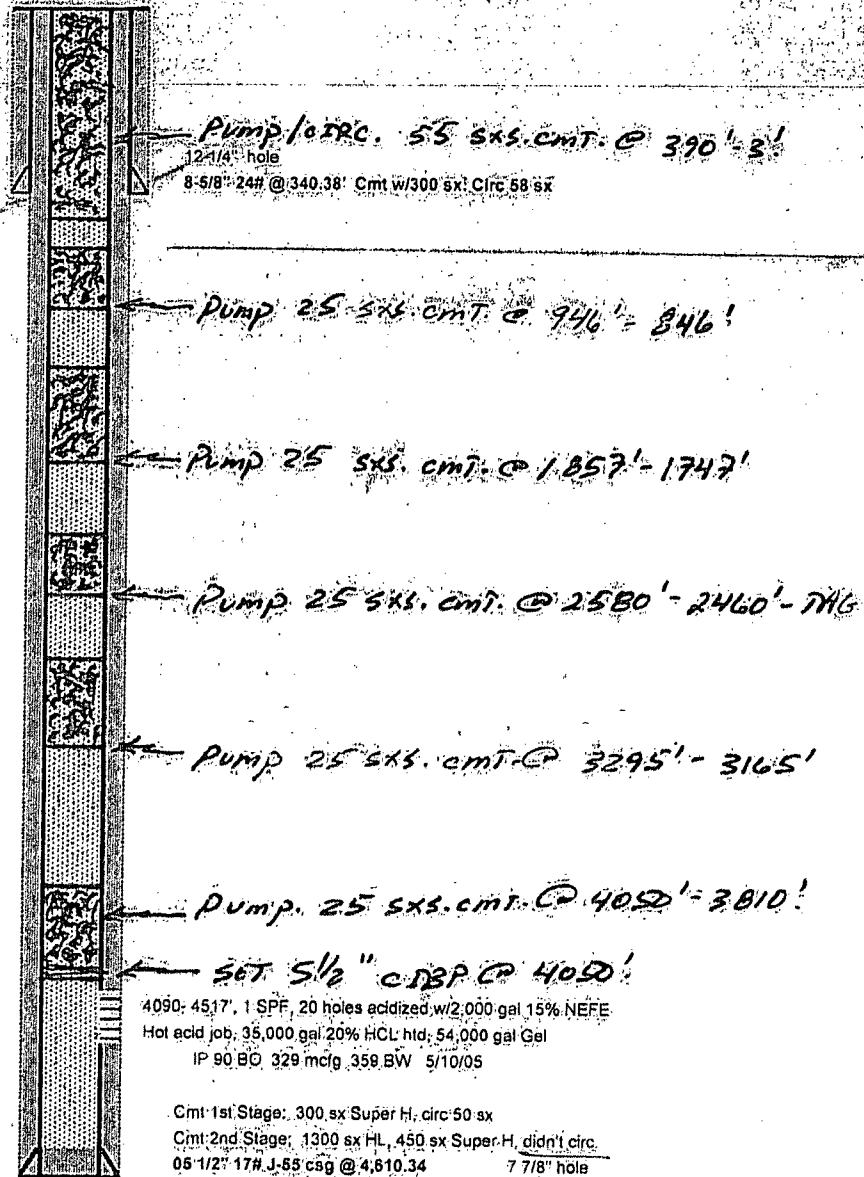 Pump/CIRC. 55 SXS. CMT. @ 390'-3'
12-1/4" hole
8-5/8" 24# @ 340.38' Cmt w/300 sx, Circ 58 sx
Pump 25 SXS. CMT @ 946'-846'
Pump 25 SXS. CMT. @ 1857'-1747'
Pump 25 SXS. CMT. @ 2580'-2460'-TAG
Pump 25 SXS. CMT. @ 3295'-3165'
Pump. 25 SXS. CMT. @ 4050'-3810'
SET 5 1/2" CIBP @ 4050'
4090-4517', 1 SPF, 20 holes acidized w/2,000 gal 15% NEFE
Hot acid job, 35,000 gal 20% HCL htd, 54,000 gal Gel
IP 90 BO 329 mcfg 359 BW 5/10/05
Cmt 1st Stage: 300 sx Super H, circ 50 sx
Cmt 2nd Stage; 1300 sx HL, 450 sx Super H, didn't circ.
05 1/2" 17# J-55 csg @ 4,610.34 7 7/8" hole